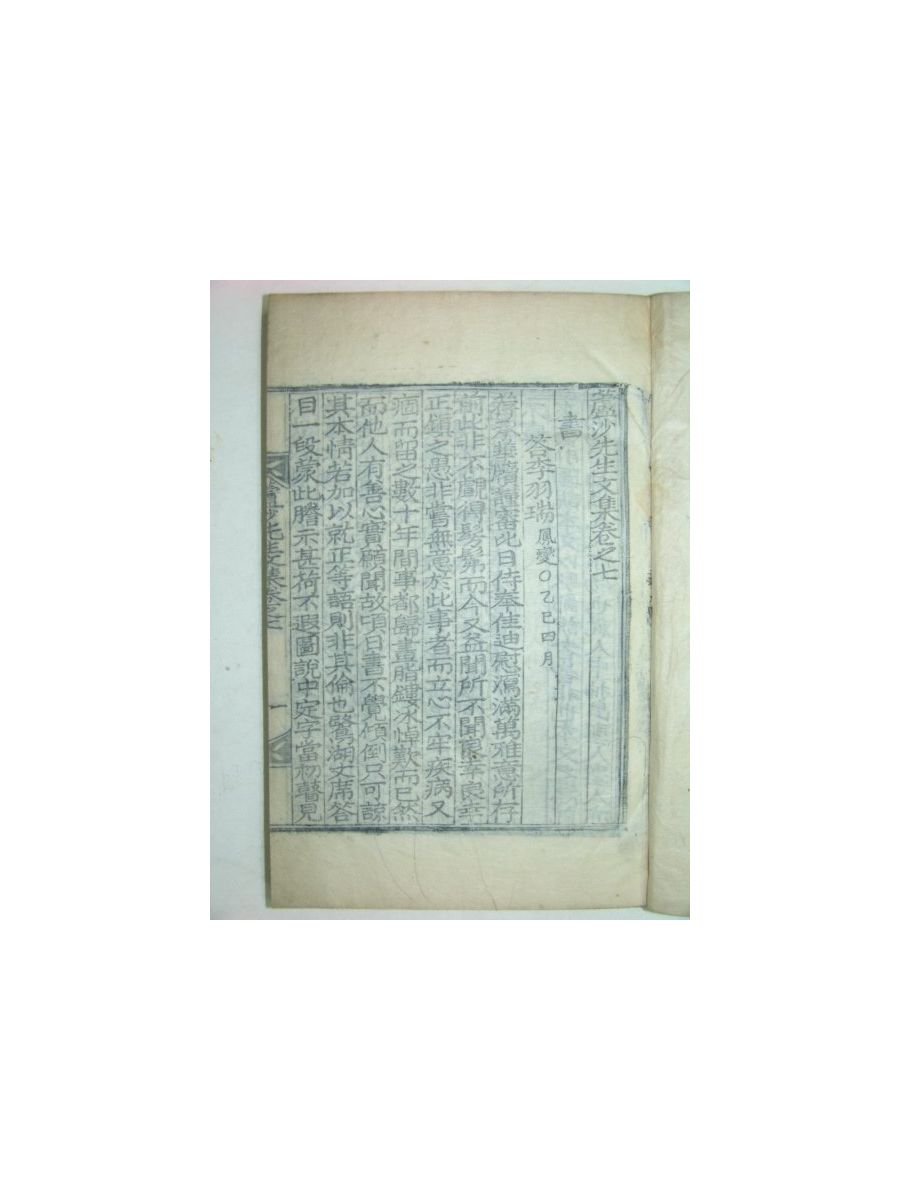 蘆沙先生文集卷之七
書
答李羽瑞鳳燮○乙巳四月
華牘謹審比日侍奉佳迪慰瀉滿萬雅意所存
前此非不覰得髣髴而今又益聞所不聞良幸良幸
正鎭之愚非嘗無意於此事者而立心不牢疾病又
痼而留之數十年間事都歸畫脂鏤氷悼歎而已然
而他人有善心實願聞故頃日書不覺傾倒只可諒
其本情若加以就正等語則非其倫也鵞湖丈席答
目一段蒙此謄示甚荷不遐圖說中定字當初瞽見
蘆沙先生文集卷之七
一